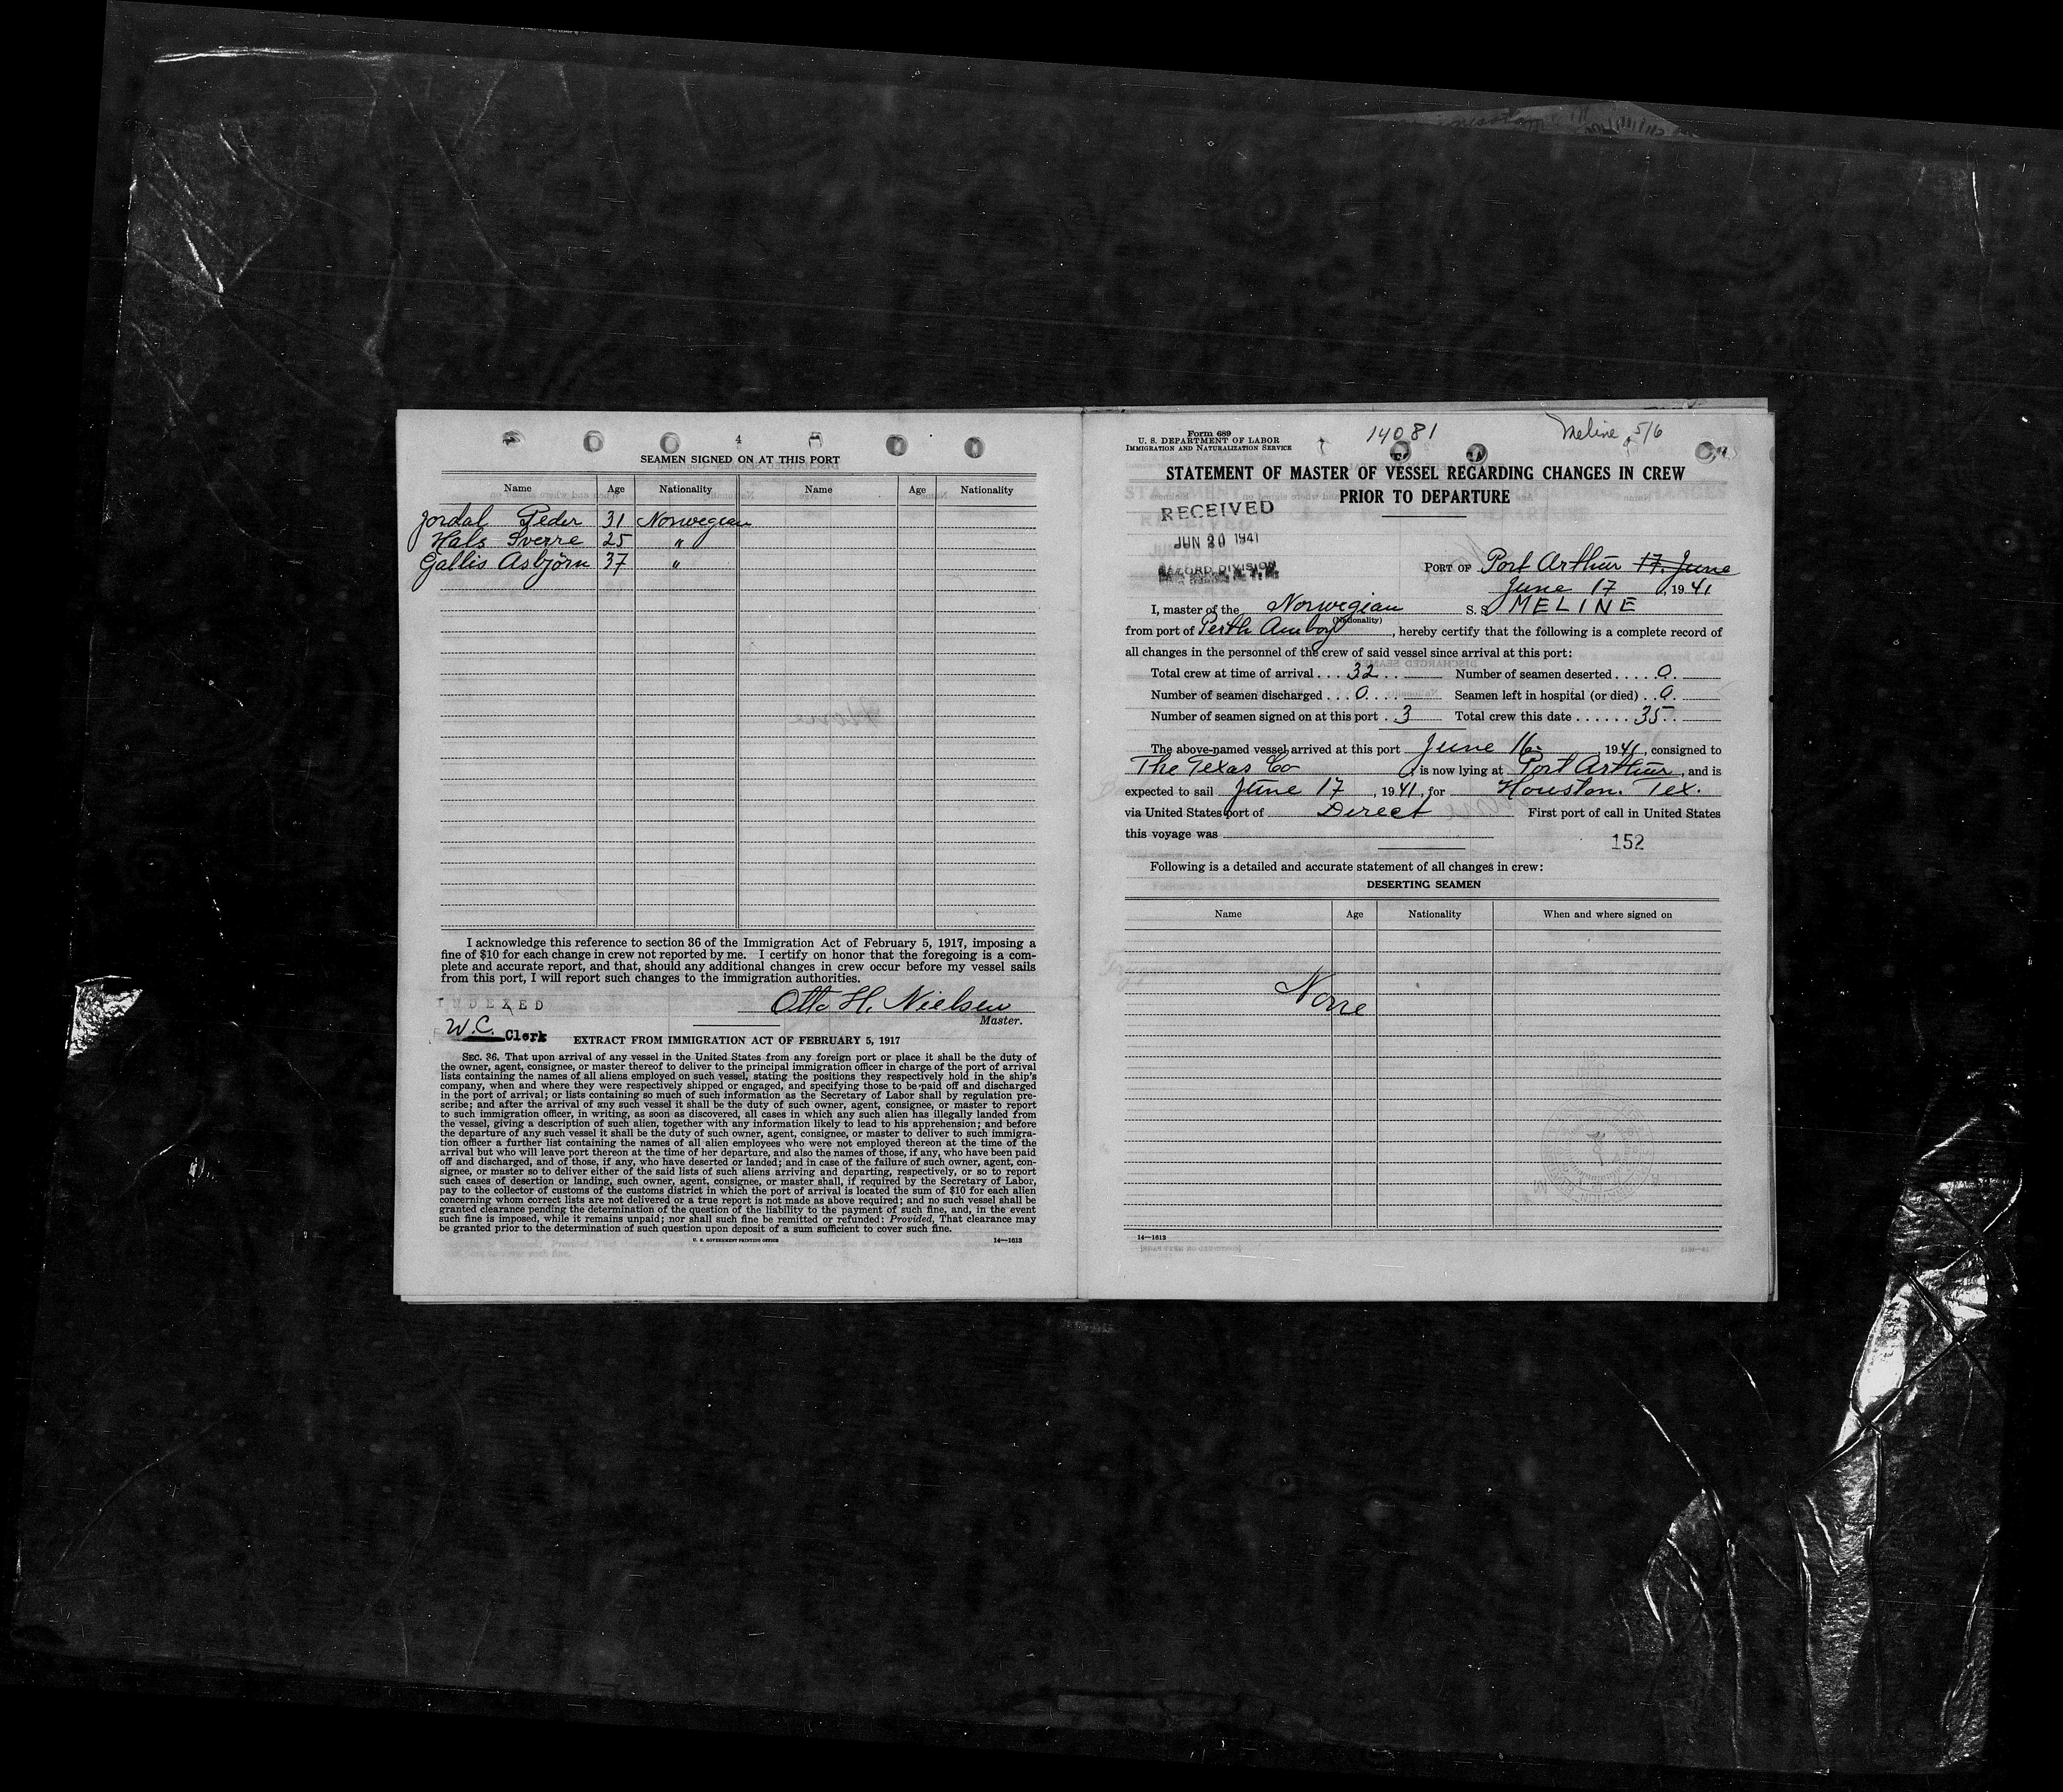 4
SEAMEN SIGNED ON AT THIS PORT
Name Age Nationality Name Age Nationality
Jordal Peder 31 Norwegian
Hals Sverre 25 "
Gallis Asbjörn 37 "
I acknowledge this reference to section 36 of the Immigration Act of February 5, 1917, imposing a
fine of $10 for each change in crew not reported by me. I certify on honor that the foregoing is a com-
plete and accurate report, and that, should any additional changes in crew occur before my vessel sails
from this port, I will report such changes to the immigration authorities.
INDEXED
Otto H. Nielsen
Master.
W.C. Clerk
EXTRACT FROM IMMIGRATION ACT OF FEBRUARY 5, 1917
SEC. 36. That upon arrival of any vessel in the United States from any foreign port or place it shall be the duty of
the owner, agent, consignee, or master thereof to deliver to the principal immigration officer in charge of the port of arrival
lists containing the names of all aliens employed on such vessel, stating the positions they respectively hold in the ship's
company, when and where they were respectively shipped or engaged, and specifying those to be paid off and discharged
in the port of arrival; or lists containing so much of such information as the Secretary of Labor shall by regulation pre-
scribe; and after the arrival of any such vessel it shall be the duty of such owner, agent, consignee, or master to report
to such immigration officer, in writing, as soon as discovered, all cases in which any such alien has illegally landed from
the vessel, giving a description of such alien, together with any information likely to lead to his apprehension; and before
the departure of any such vessel it shall be the duty of such owner, agent, consignee, or master to deliver to such immigra-
tion officer a further list containing the names of all alien employees who were not employed thereon at the time of the
arrival but who will leave port thereon at the time of her departure, and also the names of those, if any, who have been paid
off and discharged, and of those, if any, who have deserted or landed; and in case of the failure of such owner, agent, con-
signee, or master so to deliver either of the said lists of such aliens arriving and departing, respectively, or so to report
such cases of desertion or landing, such owner, agent, consignee, or master shall, if required by the Secretary of Labor,
pay to the collector of customs of the customs district in which the port of arrival is located the sum of $10 for each alien
concerning whom correct lists are not delivered or a true report is not made as above required; and no such vessel shall be
granted clearance pending the determination of the question of the liability to the payment of such fine, and, in the event
such fine is imposed, while it remains unpaid; nor shall such fine be remitted or refunded: Provided, That clearance may
be granted prior to the determination of such question upon deposit of a sum sufficient to cover such fine.
U. S. GOVERNMENT PRINTING OFFICE 14—1613
Form 689
U. S. DEPARTMENT OF LABOR
IMMIGRATION AND NATURALIZATION SERVICE
14081
Meline 5/6
STATEMENT OF MASTER OF VESSEL REGARDING CHANGES IN CREW
PRIOR TO DEPARTURE
RECEIVED
JUN 20 1941
RECORD DIVISION
PORT OF Port Arthur 17. June
June 17, 1941
I, master of the Norwegian S. S. MELINE
(Nationality)
from port of Perth Amboy, hereby certify that the following is a complete record of
all changes in the personnel of the crew of said vessel since arrival at this port:
Total crew at time of arrival . . . 32 . . Number of seamen deserted . . . . 0.
Number of seamen discharged . . . 0 . . . . Seamen left in hospital (or died) . . 0.
Number of seamen signed on at this port . . 3 Total crew this date . . . . . . 35 . .
The above-named vessel arrived at this port June 16, 1941, consigned to
The Texas Co, is now lying at Port Arthur, and is
expected to sail June 17, 1941, for Houston. Tex.
via United States port of Direct First port of call in United States
this voyage was
152
Following is a detailed and accurate statement of all changes in crew:
DESERTING SEAMEN
Name Age Nationality When and where signed on
None
14—1613